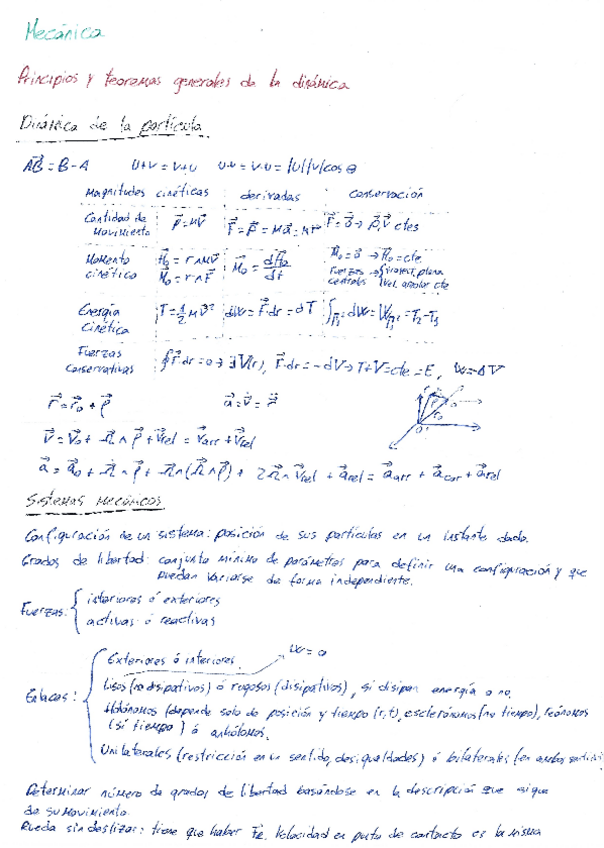 Mecánica
Principios y teoremas generales de la dinámica
Dinámica de la partícula
A⃗B = B - A  u+v = v+u  u·v = v·u = |u||v|cos θ
Magnitudes cinéticas  derivadas  conservación
Cantidad de movimiento  p⃗ = mv⃗  F⃗ = p⃗̇ = ma⃗ =  F⃗ = 0⃗ → p⃗, v⃗ ctes
Momento cinético  H⃗₀ = r∧mv⃗  M⃗₀ = dH⃗₀/dt  M⃗₀ = 0⃗ → H⃗₀ = cte
M⃗₀ = r∧F⃗  Fuerzas centrales → trayect. plana
vel. areolar cte
Energía Cinética  T = ½ mv²  dW = F⃗·dr = dT  dW = = T₂ - T₁
Fuerzas conservativas  ∮F⃗·dr = 0 → ∃V(r), F⃗·dr = -dV → T+V = cte = E, W = -ΔV
r⃗ = r⃗₀ + ρ⃗  a⃗ = v⃗̇ = r⃗̈
v⃗ = v⃗₀ + Ω⃗∧ρ⃗ + v⃗rel = v⃗arr + v⃗rel
a⃗ = a⃗₀ + Ω⃗̇∧ρ⃗ + Ω⃗∧(Ω⃗∧ρ⃗) + 2Ω⃗∧v⃗rel + a⃗rel = a⃗arr + a⃗cor + a⃗rel
Sistemas mecánicos
Configuración de un sistema: posición de sus partículas en un instante dado.
Grados de libertad: conjunto mínimo de parámetros para definir una configuración y que
puedan variarse de forma independiente.
Fuerzas: { interiores ó exteriores
activas ó reactivas
Enlaces: { Exteriores ó interiores. W = 0
Lisos (no disipativos) ó rugosos (disipativos), si disipan energía o no.
Holónomos (depende solo de posición y tiempo (r,t), esclerónomos (no tiempo), reónomos
(sí tiempo) ó anholónomos.
Unilaterales (restricción en un sentido, desigualdades) ó bilaterales (en ambos sentidos)
Determinar número de grados de libertad basándose en la descripción que sigue
de su movimiento.
Rueda sin deslizar: tiene que haber Velocidad en punto de contacto es la misma